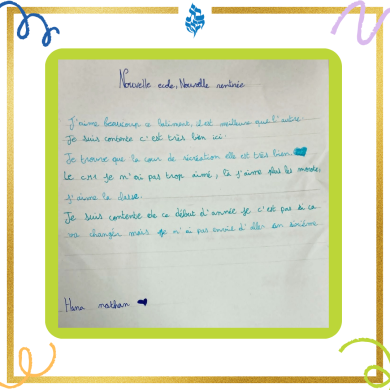 Nouvelle ecole, Nouvelle rentrée
J'aime beaucoup ce batiment, il est meilleure que l'autre.
Je suis contente c'est très bien ici.
Je trouve que la cour de récréation elle est très bien
Le cm1 je n'ai pas trop aimé, là j'aime plus les monde,
j'aime la classe.
Je suis contente de ce début d'année je c'est pas si ca
va changér mais je n'ai pas envie d'aller en sixième
Hana nathan